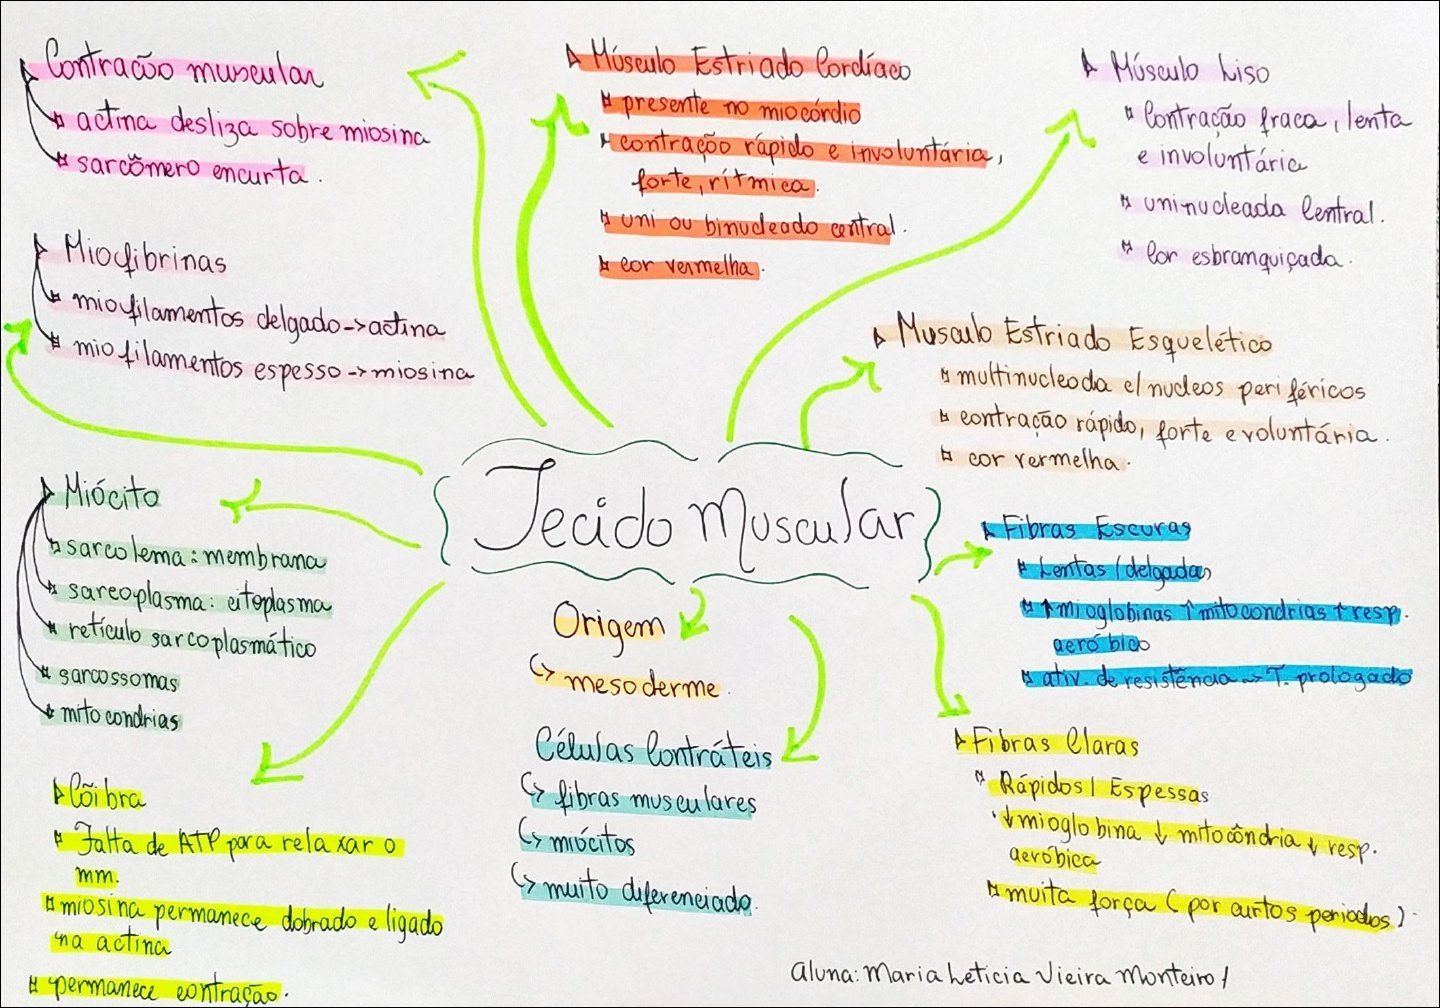 Contração muscular
actina desliza sobre miosina
sarcômero encurta.
Miofibrinas
miofilamentos delgado->actina
miofilamentos espesso->miosina
Miócito
sarcolema: membrana
sarcoplasma: citoplasma
retículo sarcoplasmático
sarcossomas
mitocondrias
Cõibra
Falta de ATP para relaxar o
mm.
miosina permanece dobrado e ligado
na actina
permanece contração.
Músculo Estriado Cordíaco
presente no miocórdio
contração rápido e involuntária,
forte, rítmica.
uni ou binucleado central.
cor vermelha.
Músculo Liso
Contração fraca, lenta
e involuntária
uninucleada Central.
Cor esbranquiçada.
Musculo Estriado Esquelético
multinucleoda c/ nucleos periféricos
contração rápido, forte e voluntária.
cor vermelha.
Tecido Muscular
Origem
↳ mesoderme.
Células Contráteis
↳ fibras musculares
↳ miócitos
↳ muito diferenciado.
Fibras Escuras
Lentas/delgadas
↑mioglobinas ↑mitocondrias ↑resp.
aeróbico
ativ. de resistência -> T. prologado
Fibras Claras
Rápidos/ Espessas
↓mioglobina ↓ mitocôndria ↓ resp.
aeróbica
muita força (por curtos periodos).
Aluna: Maria Leticia Vieira Monteiro/